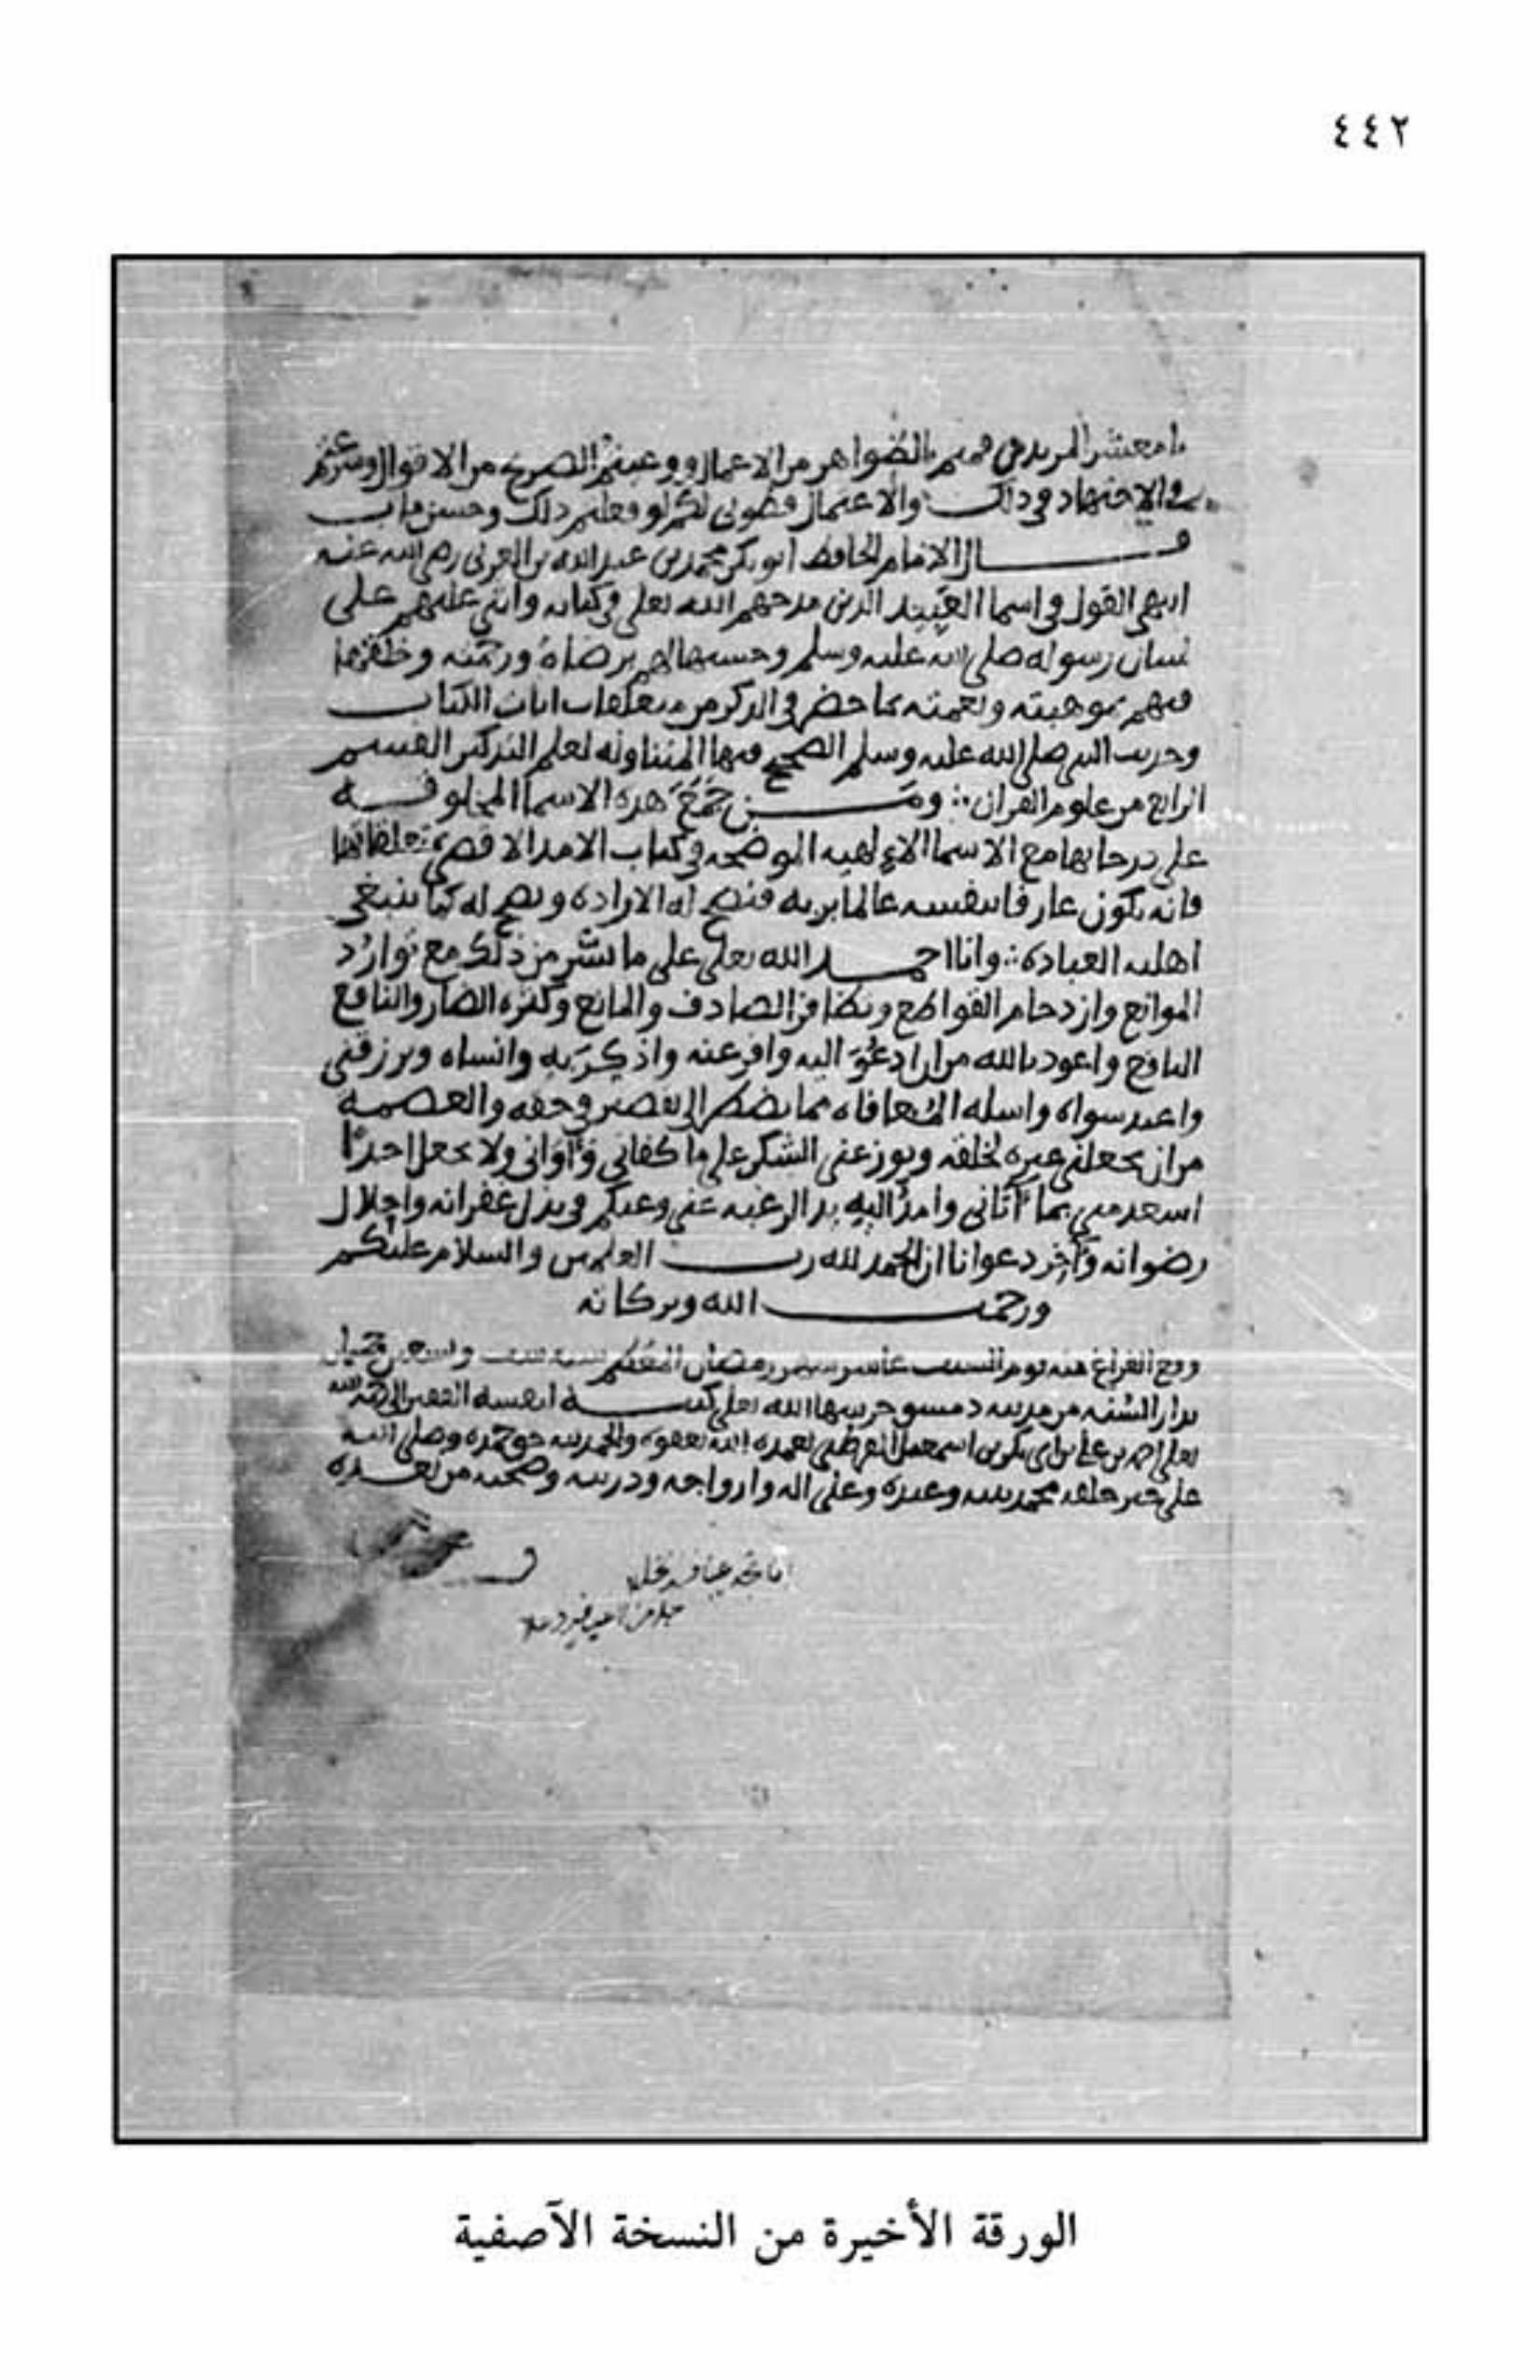 ٤٤٢
يا معشر المريدين قمتم بالظواهر من الاعمال ووعيتم الصريح من الاقوال وشرعتم
في الاجتهاد في ذلك والاعتمال فطوبى لكم لو فعلتم ذلك وحسن ماب
قال الامام الحافظ ابو بكر محمد بن عبد الله بن العربي رضي الله عنه
انتهى القول في اسما العبيد الذين مدحهم الله تعلى في كتابه واثنى عليهم على
لسان رسوله صلى الله عليه وسلم وحسبها لهم برضاه ورحمته
فيهم بموهبته ونعمته بما حضر في الذكر من متعلقات ايات الكتاب
وحديث النبي صلى الله عليه وسلم الصحيح فيها المتناوله لعلم التذكير القسم
الرابع من علوم القران ومن جمع هذه الاسما المخلوقيه
على درجاتها مع الاسما الالهيه الموضحه في كتاب الامد الاقصى بمتعلقاتها
فانه يكون عارفا بنفسه عالما بربه فتصح له الاراده وتصح له كما ينبغي
اهليه العباده وانا احمد الله تعلى على ما يسر من ذلك مع توارد
الموانع وازدحام القواطع وتظافر الصادف والمانع وكثره الضار والنافع
واعوذ بالله من ان ادعو اليه وافر عنه واذكر به وانساه ويرزقني
واعبد سواه واسله المعافاه مما يضطر الى تقصير في حقه والعصمه
من ان يجعلني عبره لخلقه ويوزعني الشكر على ما كفاني وآواني ولا يجعل احدا
اسعد مني بما آتاني وامد اليه يد الرغبه عني وعنكم في بذل غفرانه واجلال
رضوانه وآخر دعوانا ان الحمد لله رب العلمين والسلام عليكم
ورحمت الله وبركاته
وقع الفراغ منه يوم السبت عاشر شهر رمضان المعظم سنه وتسعين
بدار السنه من مدينه دمشق حرسها الله تعلى كتبه لنفسه الفقير الى رحمه الله
تعلى احمد بن علي بن ابي بكر بن اسمعيل القرطبي تغمده الله بعفوه والحمد لله حق حمده وصلى الله
على خير خلقه محمد نبيه وعبده وعلى اله وازواجه وذريته وصحبه من بعده
الورقة الأخيرة من النسخة الآصفية